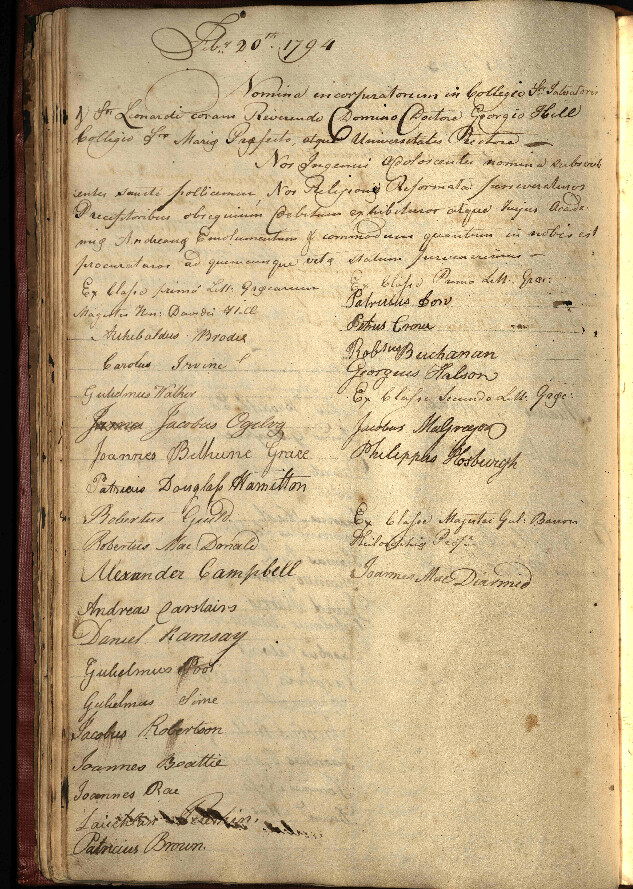 Feb.ry 20th. 1794
Nomina incorporatorum in Collegio Sti. Salvatoris
& Sti Leonardi coram Reverendo Domino Doctore Georgio Hill
Collegii Stae Mariae Praefecto, atque Universitatis Rectore
Nos Ingenui Adolescentes nomina subscrib
entes sancte pollicemur Nos Religione Reformata perseveraturos
Praeceptoribus obsequium debitum exhibituros atque hujus Acade
miae Andreanae Emolumentum & commodum quantum in nobis est
procuraturos ad quemcunque vitae statum pervenerimus —
Ex Classe primâ Litt: Graecarum
Magistro Davidei Hill
Archibaldus Brodie
Carolus Irvine
Gulielmus Walker
Jacobus Ogilvy
Joannes Bethune Grace
Patricius Douglass Hamilton
Robertus Guild.
Robertus Mac Donald
Alexander Campbell
Andreas Carstairs
Daniel Ramsay
Gulielmus
Gulielmus Sime
Jacobus Robertson
Joannes Beattie
Joannes Rae
Patricius Brown.
Ex Classe Primâ Litt: Grae:
Patricius
Petrus
Robtus Buchanan
Georgius
Ex Classe Secunda Litt: Graec:
Jacobus McGregor
Philippus Hosburgh
Ex Classe Magistri Gul: Barron
Philosophiae Profr.
Joannes Mac Diarmid